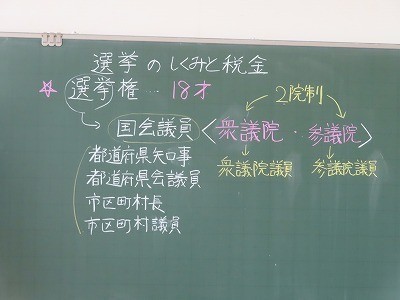 選挙のしくみと税金
☆選挙権…18才
2院制
国会議員〈衆議院・参議院〉
都道府県知事 衆議院議員 参議院議員
都道府県会議員
市区町村長
市区町村議員